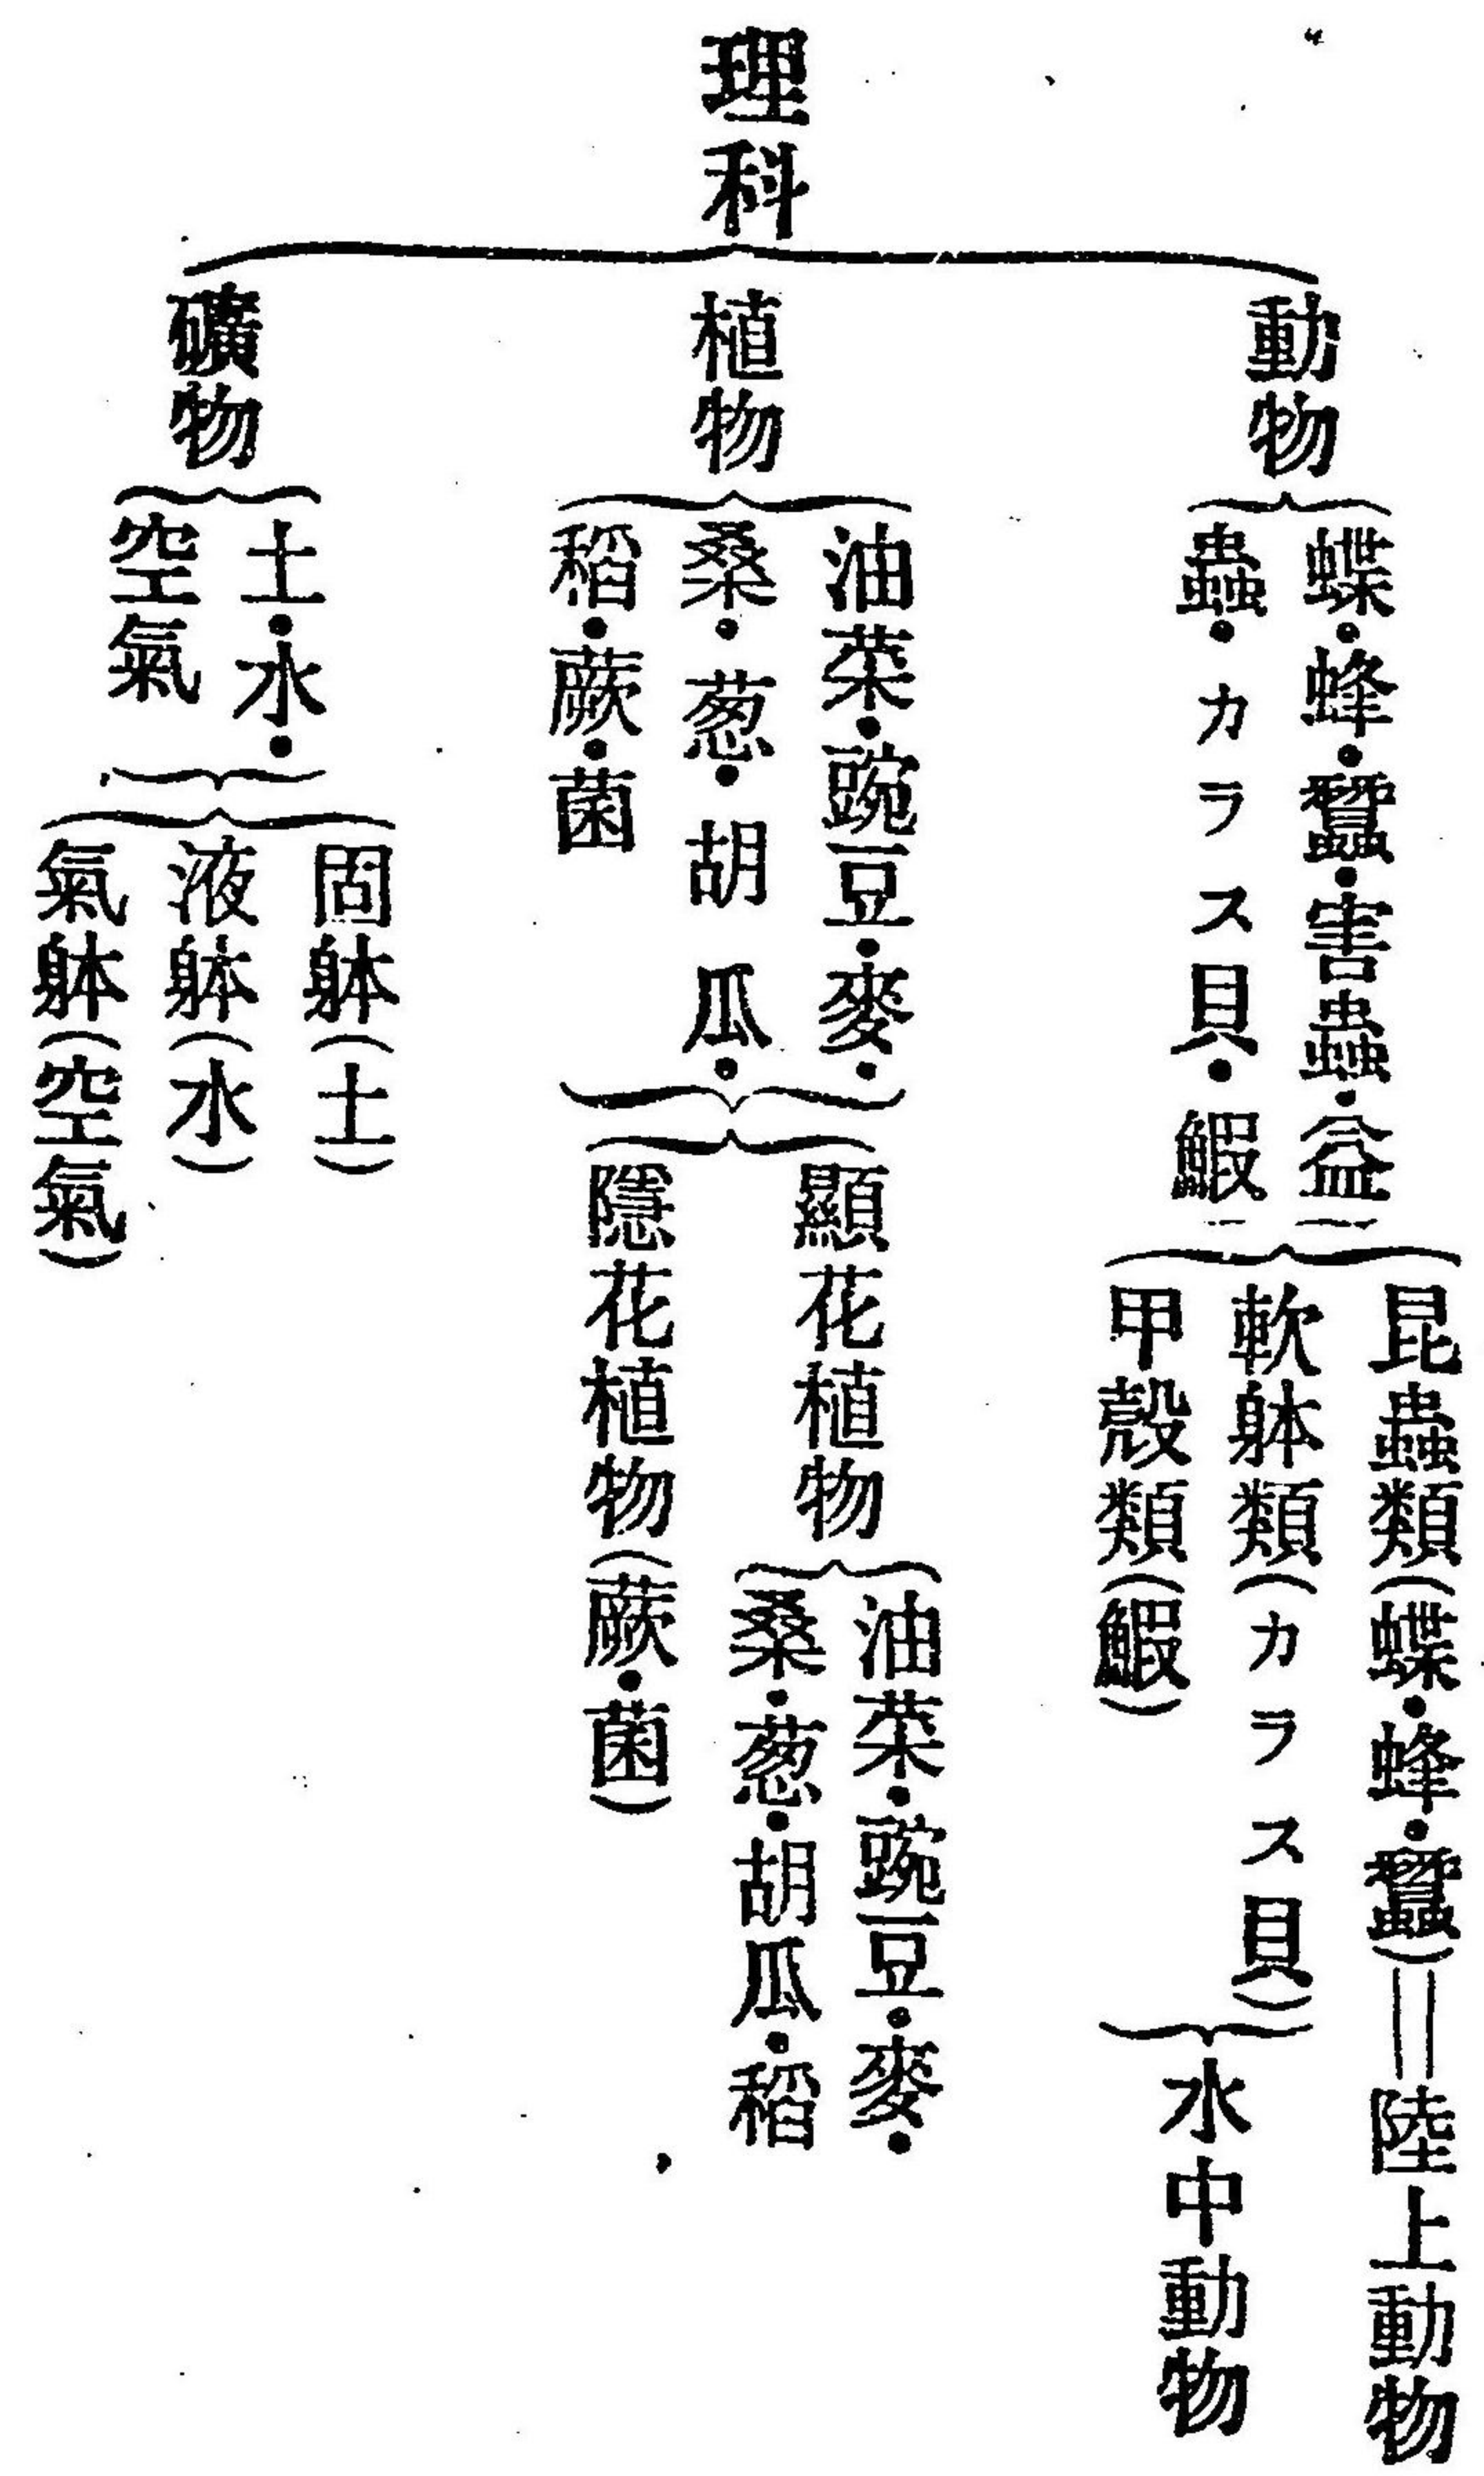 理科
動物
蝶・蜂・蠶・害蟲・益
蟲・カラス貝・鰕
昆蟲類(蝶・蜂・蠶)＝陸上動物
軟躰類(カラス貝)
甲殼類(鰕)
水中動物
植物
油菜・豌豆・麥・
桑・葱・胡瓜・
稻・蕨・菌
顯花植物
油菜・豌豆・麥・
桑・葱・胡瓜・稻
隱花植物(蕨・菌)
礦物
土・水・
空氣
固躰(土)
液躰(水)
氣躰(空氣)